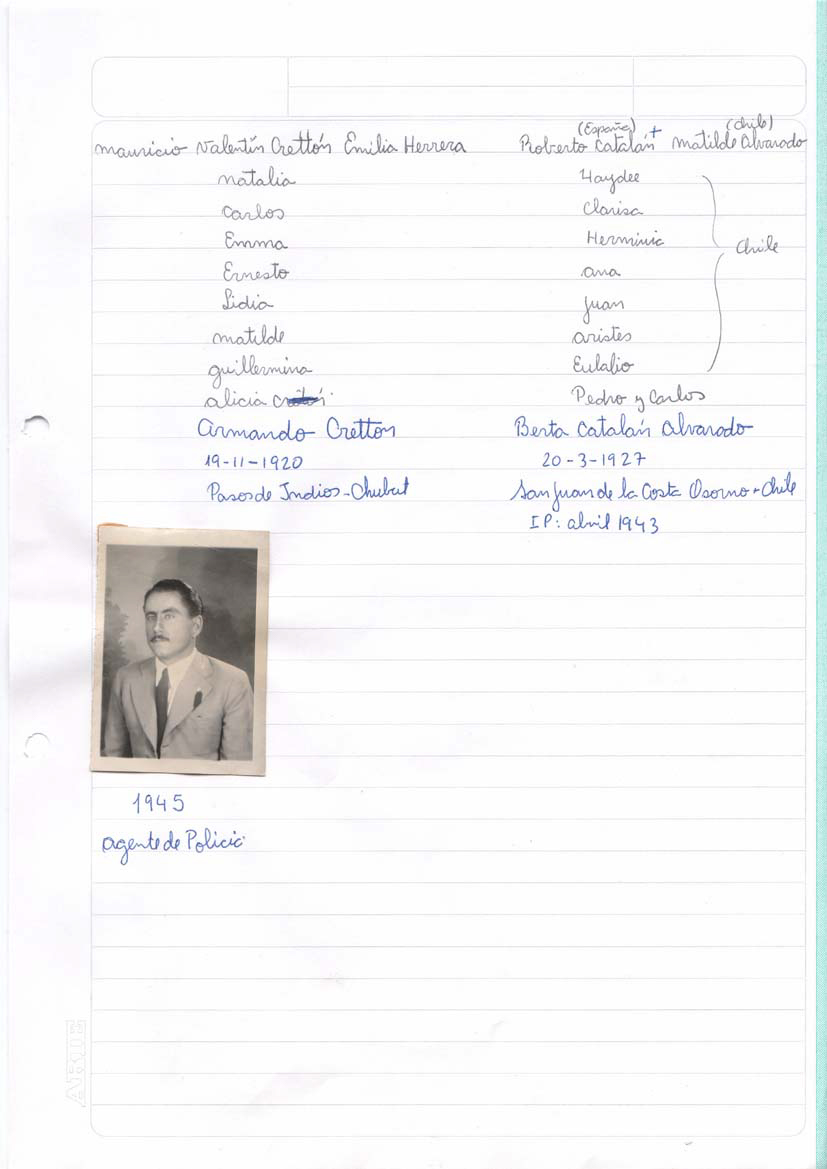 (España) (Chile)
mauricio Valentín Crettón Emilia Herrera
Roberto Catalán + Matilde Alvarado
natalia
Carlos
Emma
Ernesto
Lidia
matilde
guillermina
alicia
Armando Cretton
19-11-1920
Pasos de Indios - Chubut
Haydee
Clarisa
Herminia
ana
Juan
aristes
Eulalio
Chile
Pedro y Carlos
Berta Catalán Alvarado
20-3-1927
San Juan de la Costa Osorno - Chile
IP: abril 1943
1945
agente de Policia
ARTE